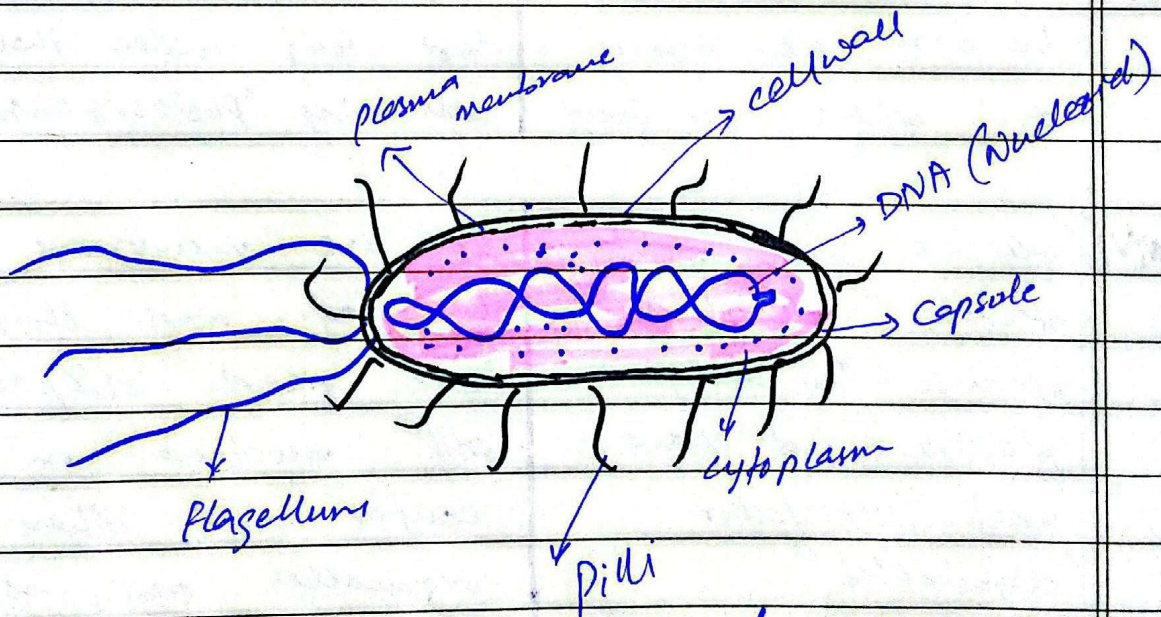 plasma
membrane
cell wall
DNA (Nucleoid)
Capsole
cytoplasm
flagellum
Pilli